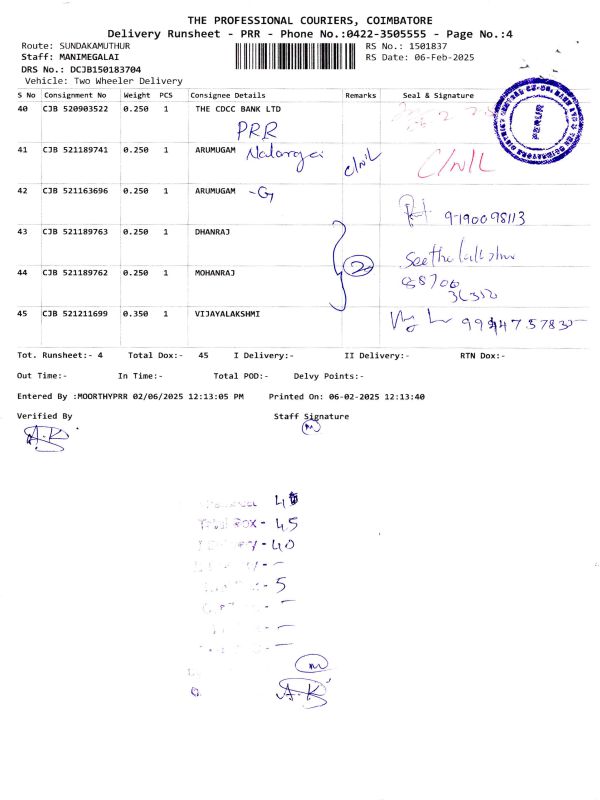 THE PROFESSIONAL COURIERS, COIMBATORE
Delivery Runsheet - PRR - Phone No.:0422-3505555 - Page No.:4
Route: SUNDAKAMUTHUR RS No.: 1501837
Staff: MANIMEGALAI RS Date: 06-Feb-2025
DRS No.: DCJB150183704
Vehicle: Two Wheeler Delivery
S No Consignment No Weight PCS Consignee Details Remarks Seal & Signature
40 CJB 520903522 0.250 1 THE CDCC BANK LTD
PRR
41 CJB 521189741 0.250 1 ARUMUGAM C/N/L C/N/L
42 CJB 521163696 0.250 1 ARUMUGAM -G
9790098113
43 CJB 521189763 0.250 1 DHANRAJ
2
44 CJB 521189762 0.250 1 MOHANRAJ
45 CJB 521211699 0.350 1 VIJAYALAKSHMI
Tot. Runsheet:- 4 Total Dox:- 45 I Delivery:- II Delivery:- RTN Dox:-
Out Time:- In Time:- Total POD:- Delvy Points:-
Entered By :MOORTHYPRR 02/06/2025 12:13:05 PM Printed On: 06-02-2025 12:13:40
Verified By Staff Signature
A.K m
45
- 45
- 40
-
- 5
-
-
-
m
A.K